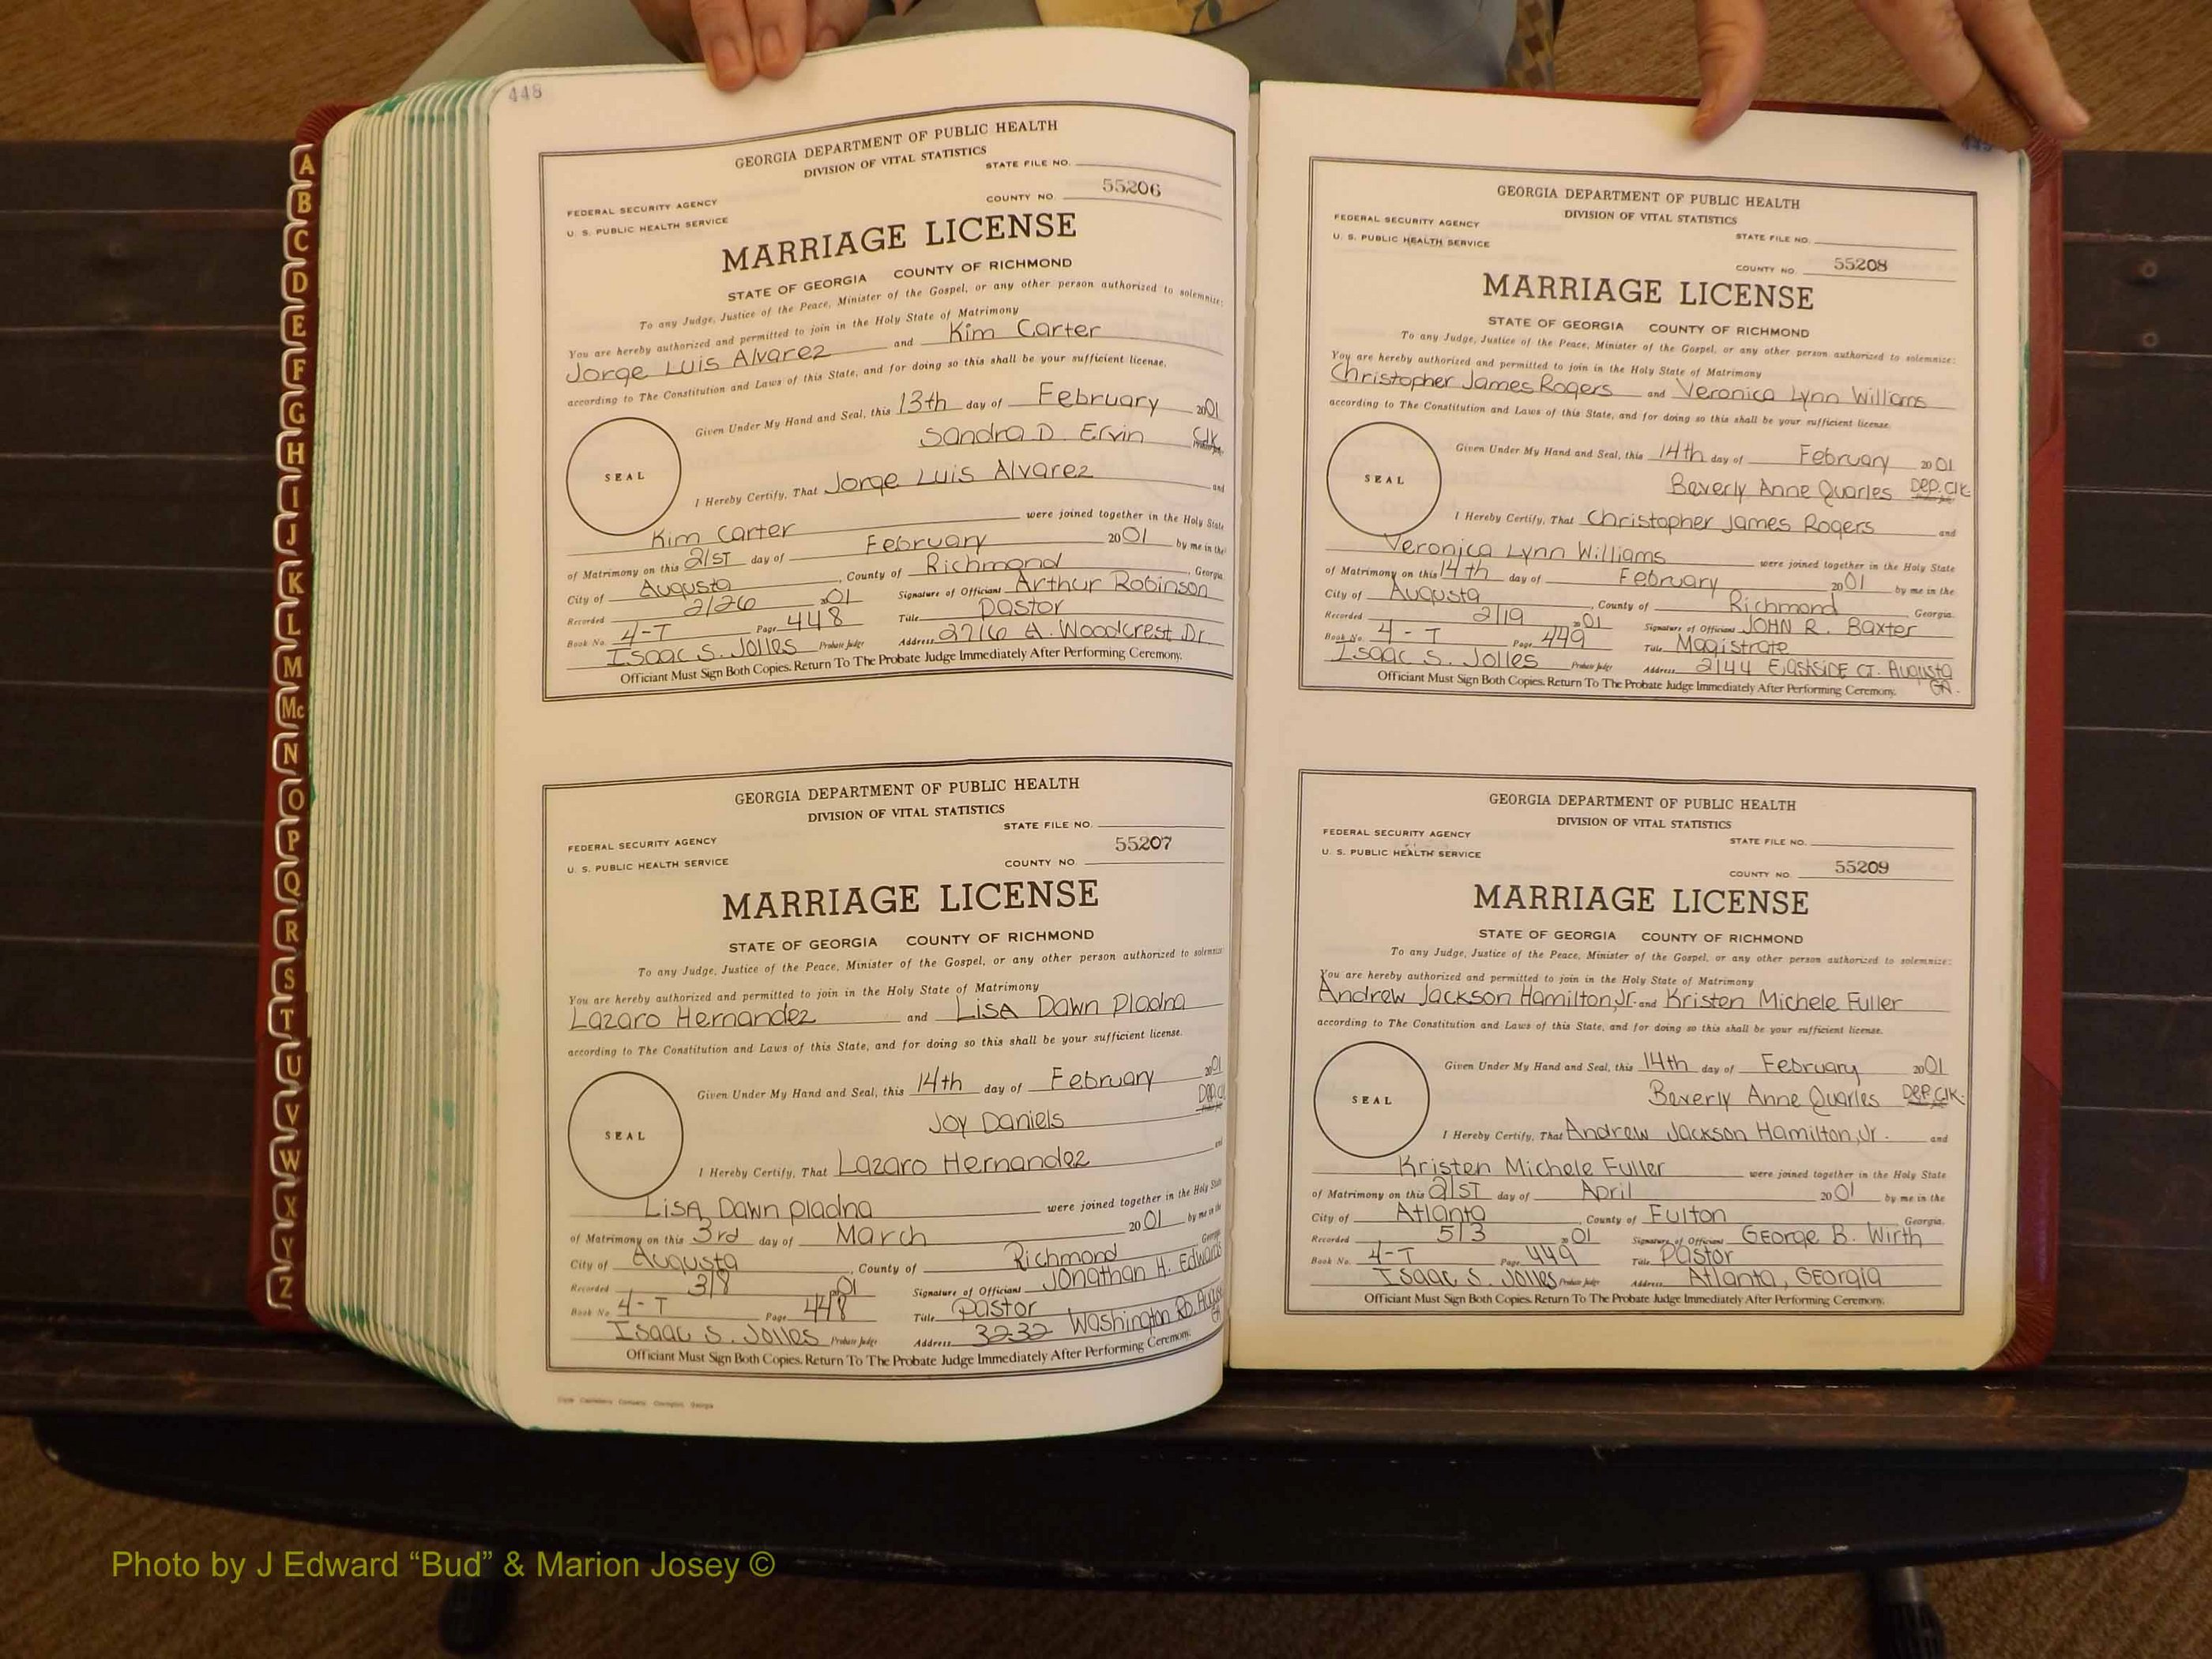 448
GEORGIA DEPARTMENT OF PUBLIC HEALTH
DIVISION OF VITAL STATISTICS
STATE FILE NO.
FEDERAL SECURITY AGENCY
COUNTY NO. 55206
U. S. PUBLIC HEALTH SERVICE
MARRIAGE LICENSE
STATE OF GEORGIA COUNTY OF RICHMOND
To any Judge, Justice of the Peace, Minister of the Gospel, or any other person authorized to solemnize:
You are hereby authorized and permitted to join in the Holy State of Matrimony
Jorge Luis Alvarez and Kim Carter
according to The Constitution and Laws of this State, and for doing so this shall be your sufficient license.
Given Under My Hand and Seal, this 13th day of February 2001
Sandra D. Ervin Clk
SEAL
I Hereby Certify, That Jorge Luis Alvarez and
Kim Carter were joined together in the Holy State
of Matrimony on this 21ST day of February 2001 by me in the
City of Augusta, County of Richmond, Georgia
Recorded 2/26 2001 Signature of Officiant Arthur Robinson
Book No. 4-T Page 448 Title Pastor
Isaac S. Jolles Probate Judge Address 2716 A. Woodcrest Dr
Officiant Must Sign Both Copies. Return To The Probate Judge Immediately After Performing Ceremony.
GEORGIA DEPARTMENT OF PUBLIC HEALTH
DIVISION OF VITAL STATISTICS
STATE FILE NO.
FEDERAL SECURITY AGENCY
COUNTY NO. 55207
U. S. PUBLIC HEALTH SERVICE
MARRIAGE LICENSE
STATE OF GEORGIA COUNTY OF RICHMOND
To any Judge, Justice of the Peace, Minister of the Gospel, or any other person authorized to solemnize:
You are hereby authorized and permitted to join in the Holy State of Matrimony
Lazaro Hernandez and LiSA Dawn Pladna
according to The Constitution and Laws of this State, and for doing so this shall be your sufficient license.
Given Under My Hand and Seal, this 14th day of February 2001
Joy Daniels
SEAL
I Hereby Certify, That Lazaro Hernandez and
LiSA Dawn pladna were joined together in the Holy State
of Matrimony on this 3rd day of March 2001 by me in the
City of Augusta, County of Richmond Georgia
Recorded 3/8 2001 Signature of Officiant Jonathan H. Edwards
Book No. 4-T Page 448 Title Pastor
Isaac S. Jolles Probate Judge Address 3232 Washington Rd.
Officiant Must Sign Both Copies. Return To The Probate Judge Immediately After Performing Ceremony.
449
GEORGIA DEPARTMENT OF PUBLIC HEALTH
DIVISION OF VITAL STATISTICS
FEDERAL SECURITY AGENCY
STATE FILE NO.
U. S. PUBLIC HEALTH SERVICE
COUNTY NO. 55208
MARRIAGE LICENSE
STATE OF GEORGIA COUNTY OF RICHMOND
To any Judge, Justice of the Peace, Minister of the Gospel, or any other person authorized to solemnize:
You are hereby authorized and permitted to join in the Holy State of Matrimony
Christopher James Rogers and Veronica Lynn Williams
according to The Constitution and Laws of this State, and for doing so this shall be your sufficient license.
Given Under My Hand and Seal, this 14th day of February 2001
Beverly Anne Quarles Dep. Clk.
SEAL
I Hereby Certify, That Christopher James Rogers and
Veronica Lynn Williams were joined together in the Holy State
of Matrimony on this 14th day of February 2001 by me in the
City of Augusta, County of Richmond Georgia.
Recorded 2/19 2001 Signature of Officiant JOHN R. Baxter
Book No. 4-T Page 449 Title Magistrate
Isaac S. Jolles Probate Judge Address 2144 EastSIDE CT. Augusta GA.
Officiant Must Sign Both Copies. Return To The Probate Judge Immediately After Performing Ceremony.
GEORGIA DEPARTMENT OF PUBLIC HEALTH
DIVISION OF VITAL STATISTICS
FEDERAL SECURITY AGENCY
STATE FILE NO.
U. S. PUBLIC HEALTH SERVICE
COUNTY NO. 55209
MARRIAGE LICENSE
STATE OF GEORGIA COUNTY OF RICHMOND
To any Judge, Justice of the Peace, Minister of the Gospel, or any other person authorized to solemnize:
You are hereby authorized and permitted to join in the Holy State of Matrimony
Andrew Jackson Hamilton, Jr. and Kristen Michele Fuller
according to The Constitution and Laws of this State, and for doing so this shall be your sufficient license.
Given Under My Hand and Seal, this 14th day of February 2001
Beverly Anne Quarles Dep. Clk.
SEAL
I Hereby Certify, That Andrew Jackson Hamilton, Jr. and
Kristen Michele Fuller were joined together in the Holy State
of Matrimony on this 21ST day of April 2001 by me in the
City of Atlanta, County of Fulton Georgia.
Recorded 5/3 2001 Signature of Officiant George B. Wirth
Book No. 4-T Page 449 Title Pastor
Isaac S. Jolles Probate Judge Address Atlanta, Georgia
Officiant Must Sign Both Copies. Return To The Probate Judge Immediately After Performing Ceremony.
A
B
C
D
E
F
G
H
I
J
K
L
M
Mc
N
O
P
Q
R
S
T
U
V
W
X
Y
Z
Photo by J Edward “Bud” & Marion Josey ©